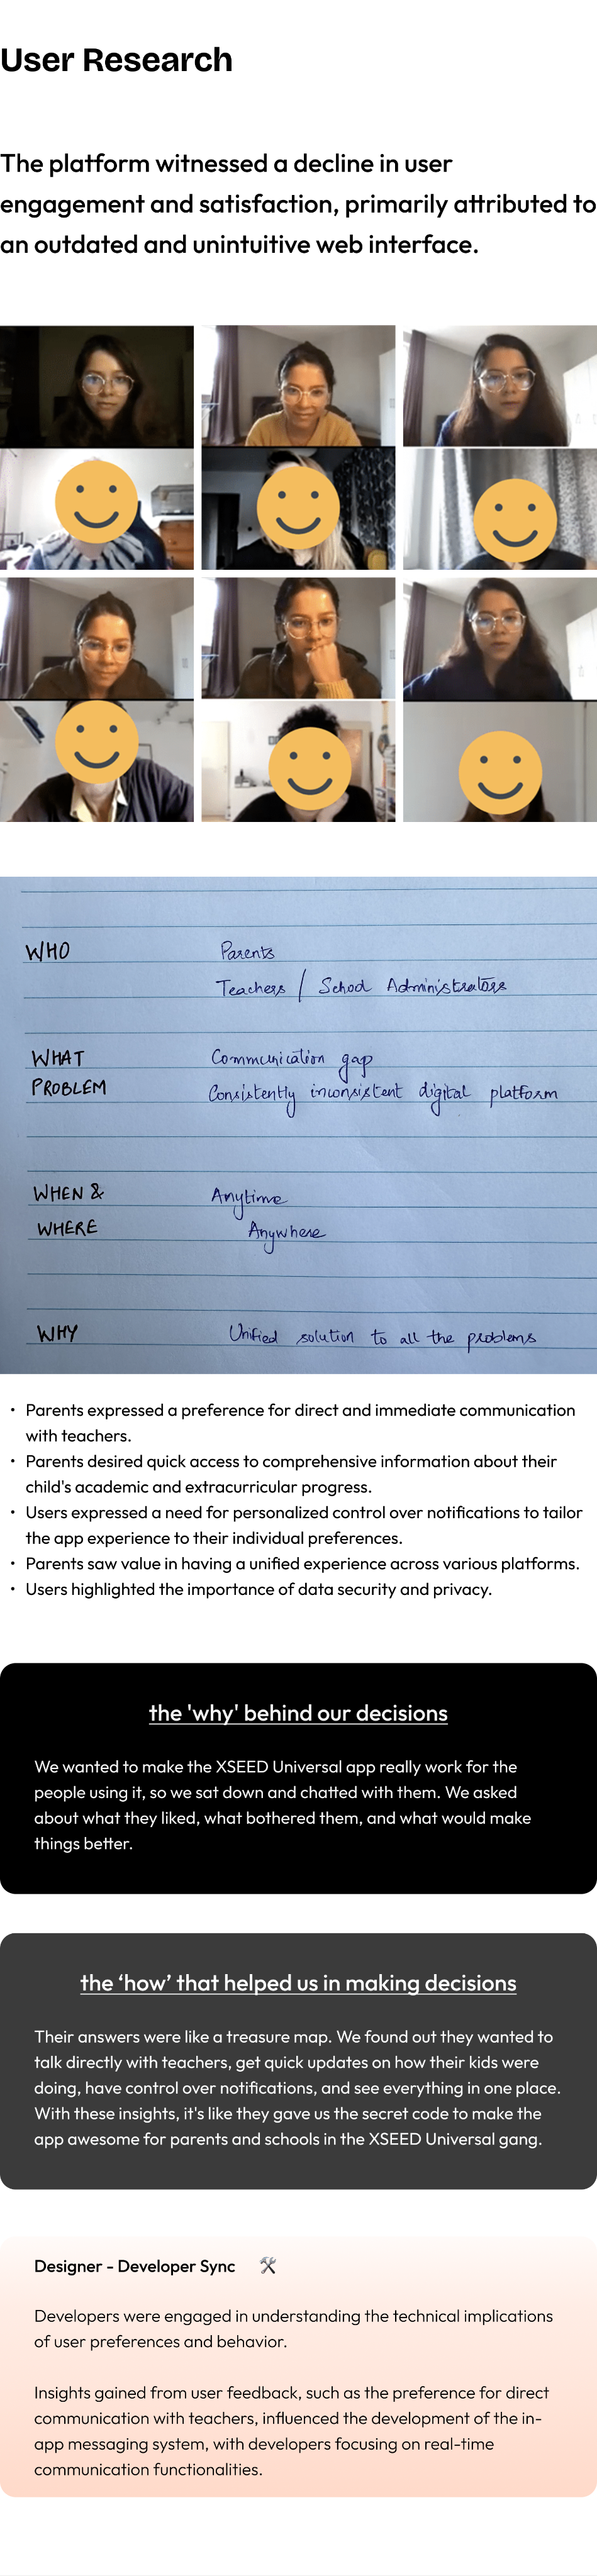 User Research
The platform witnessed a decline in user
engagement and satisfaction, primarily attributed to
an outdated and unintuitive web interface.
WHO Parents
Teachers / School Administrators
WHAT Communication gap
PROBLEM Consistently inconsistent digital platform
WHEN & Anytime
WHERE Anywhere
WHY Unified solution to all the problems
• Parents expressed a preference for direct and immediate communication
with teachers.
• Parents desired quick access to comprehensive information about their
child's academic and extracurricular progress.
• Users expressed a need for personalized control over notifications to tailor
the app experience to their individual preferences.
• Parents saw value in having a unified experience across various platforms.
• Users highlighted the importance of data security and privacy.
the 'why' behind our decisions
We wanted to make the XSEED Universal app really work for the
people using it, so we sat down and chatted with them. We asked
about what they liked, what bothered them, and what would make
things better.
the ‘how’ that helped us in making decisions
Their answers were like a treasure map. We found out they wanted to
talk directly with teachers, get quick updates on how their kids were
doing, have control over notifications, and see everything in one place.
With these insights, it's like they gave us the secret code to make the
app awesome for parents and schools in the XSEED Universal gang.
Designer - Developer Sync 🛠
Developers were engaged in understanding the technical implications
of user preferences and behavior.
Insights gained from user feedback, such as the preference for direct
communication with teachers, influenced the development of the in-
app messaging system, with developers focusing on real-time
communication functionalities.